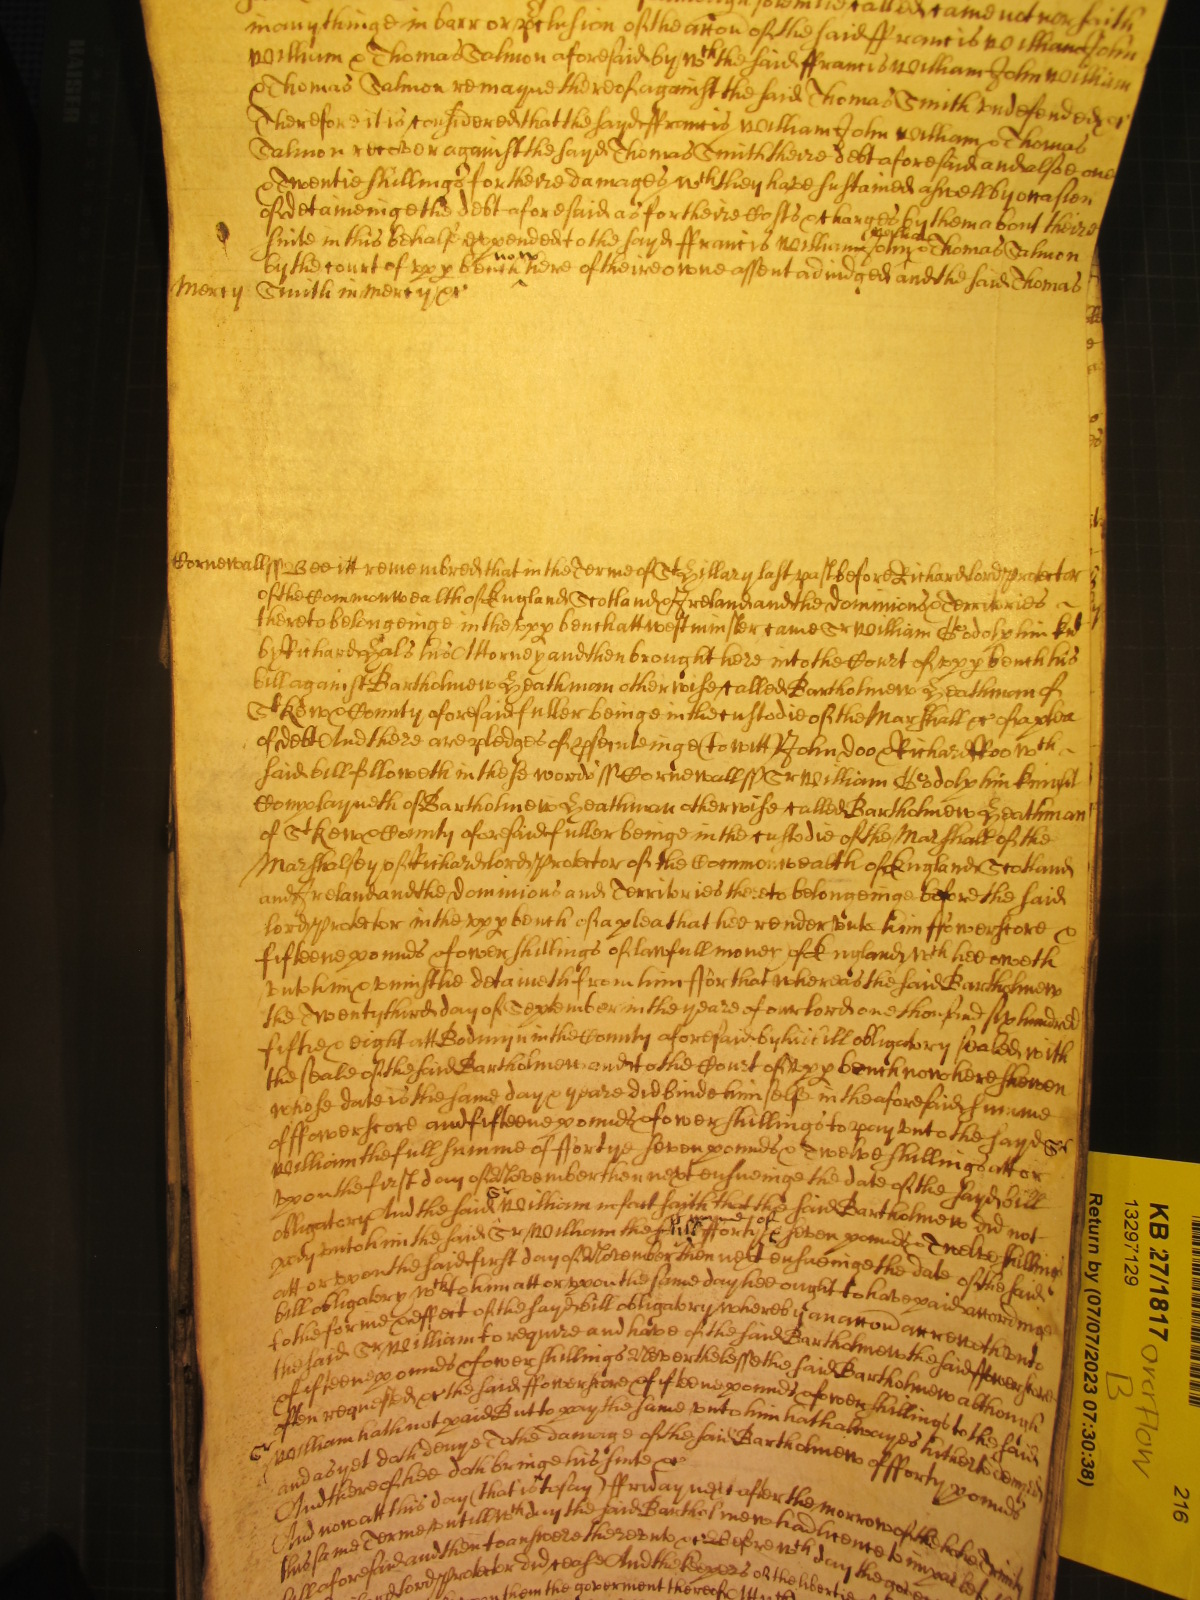 in any thinge in barr or pclusion of the accon of the said ffrancis William John
William & Thomas Salmon aforesaid by wch the said ffrancis William John William
& Thomas Salmon remayne thereof against the said Thomas Smith undefended &c
Therefore it is considered that the sayd ffrancis William John William & Thomas
Salmon recover against the sayd Thomas Smith theire debt aforesaid and alsoe one
& Twentie shillings for theire damages wch they have sustained aswell by occasion
of deteineinge the debt aforesaid as for theire Costs & charges by them about theire
suite in this behalf expended to the sayd ffrancis William John William & Thomas Salmon
by the court of upp bench now here of theire owne assent adiudged and the said Thomas
Mercy Smith in mercy &c
Cornewall ss Bee itt remembred that in the Terme of St Hillary last past before Richard lord protector
of the Commonwealth of England Scotland & Ireland and the dominions & Territories
thereto belongeinge in the upp bench att westminster came Sr William Godolphin knt
by Richard Hals his Attorney and then brought here into the Court of upp bench his
bill against Bartholmew Heathman otherwise called Bartholmew Heathman of
St Kew & County aforesaid fuller beinge in the custodie of the Marshall &c of a plea
of debt And there are pledges of psecuteinge (to witt) John doo & Richard Roo wch
said bill followeth in these words ss Cornewall ss Sr William Godolphin knight
Complayneth of Bartholmew Heathman otherwise called Bartholmew Heathman
of St Kew & County aforesaid fuller beinge in the custodie of the Marshall of the
Marshalsey of Richard lord protector of the Commonwealth of England Scotland
and Ireland and the dominions and Territories thereto belongeinge before the said
lord protector in the upp bench of a plea that hee render unto him ffowerscore &
fifteene pounds & fower shillings of lawfull money of England wch hee oweth
unto him & uniustlie detaineth from him ffor that whereas the said Bartholmew
the Twenty third day of September in the yeare of our lord one thousand six hundred
fiftie & eight att Bodmyn in the County aforesaid by his bill obligatory sealed with
the seale of the said Bartholmew and to the Court of upp bench now here shewen
whose date is the same day & yeare did binde himself in the aforesaid summe
of ffowerscore and fifteene pounds & fower shillings to pay unto the sayd Sr
William the full summe of ffortye seven pounds & Twelve shillings att or
upon the first day of November then next ensueinge the date of the sayd bill
obligatory And the said Sr William in fact saith that the said Bartholmew did not
pay unto him the said Sr William the summe of fforty & seven pounds & Twelve shillings
att or upon the said first day of November then next ensueinge the date of the said
bill obligatory wch to him att or upon the same day hee ought to have paid accordinge
to the forme & effect of the sayd bill obligatory whereby an accon accreweth unto
the said Sr William to require and have of the said Bartholmew the said ffowerscore
& fifteene pounds & fower shillings Neverthelesse the said Bartholmew although
often requested &c the said ffowerscore & fifteene pounds & fower shillings to the said
Sr William hath not paid But to pay the same unto him hath alwayes hitherto denyed
and as yet doth denye To the damage of the said Bartholmew of fforty pounds
And thereof hee doth bringe his suite &c
And now att this day (that is to say) ffriday next after the morrow of the holie Trinity
this same Terme untill wch day the said Bartholmew had licence to imparl
bill aforesaid and then to answere thereunto &c before wch day the
lord protector did cease And the keepers of the libertie
upon them the goverment thereof
KB 27/1817 overflow
B
13297129
Return by (07/07/2023 07:30:38)
216